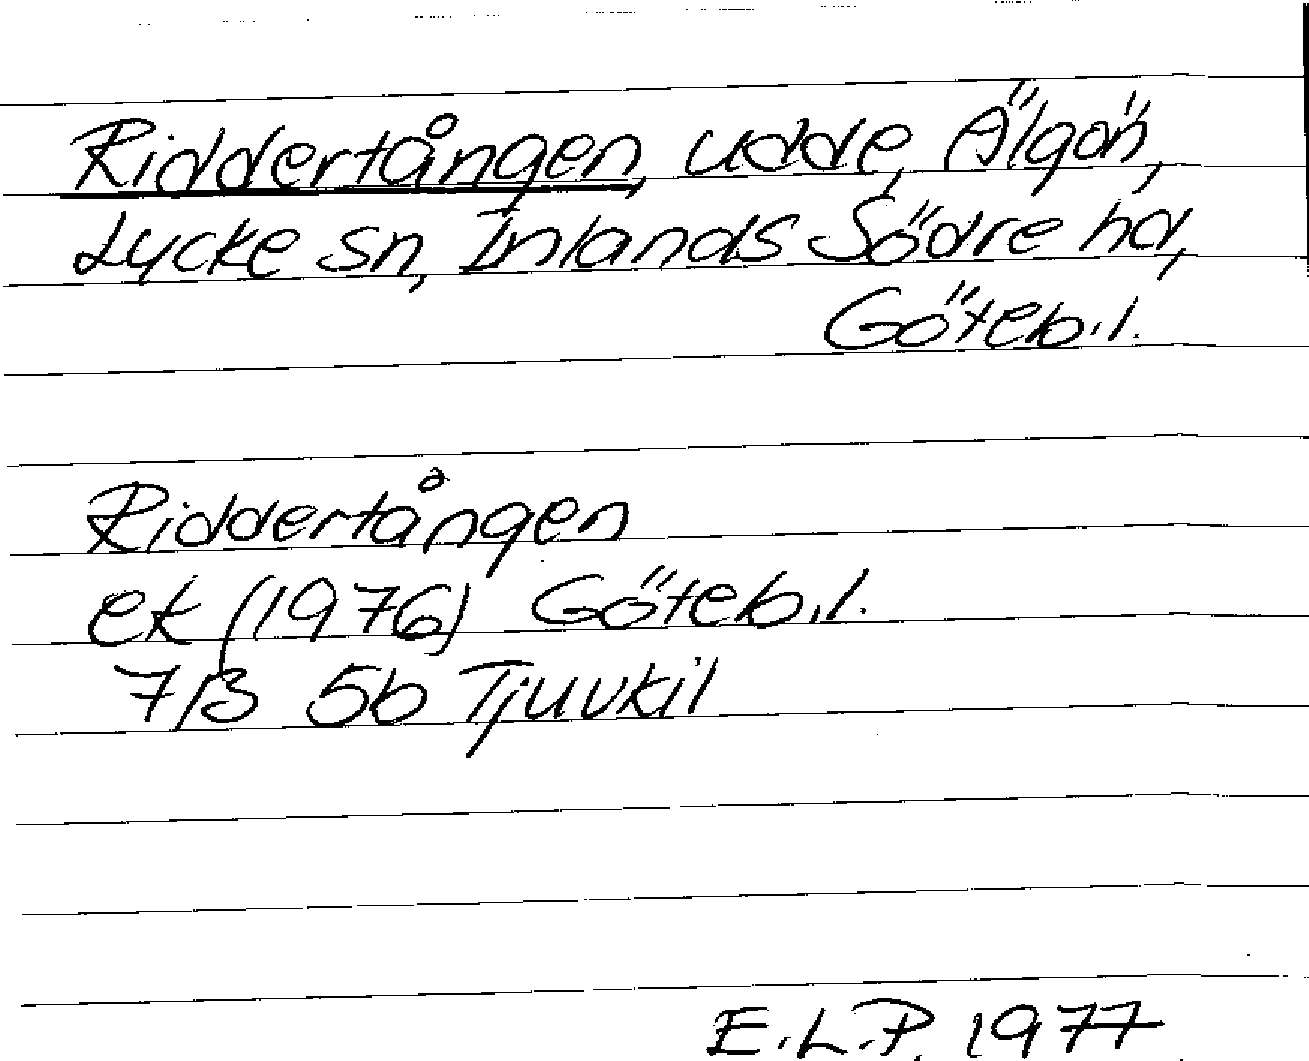 Riddertången, udde, Älgön,
Lycke sn, Inlands Södre hd,
Göteb.l.
Riddertången
ek (1976) Göteb.l.
7/3 5b Tjuvkil
E.L.P. 1977